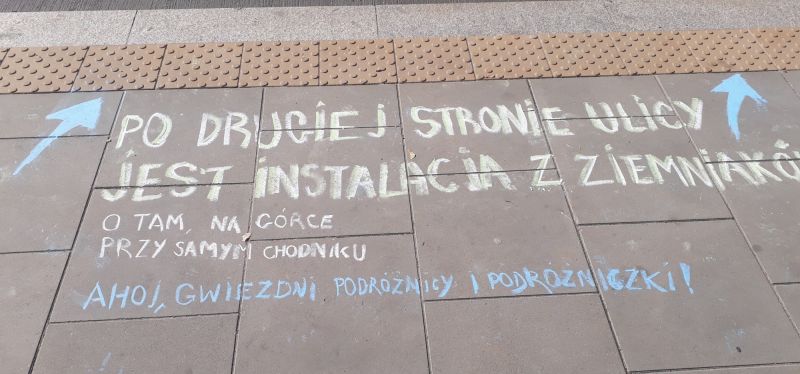 PO DRUGIEJ STRONIE ULICY
JEST INSTALACJA Z ZIEMNIAKÓ
O TAM, NA GÓRCE
PRZY SAMYM CHODNIKU
AHOJ, GWIEZDNI PODRÓŻNICY I PODRÓŻNICZKI!